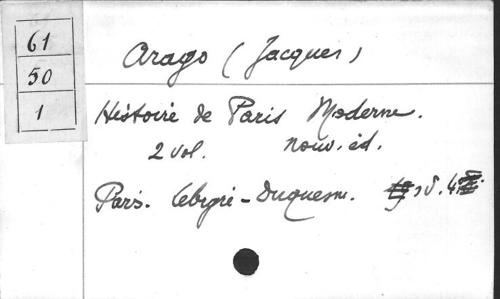 61
50
1
Arago (Jacques)
Histoire de Paris Moderne.
2 vol. nouv. éd.
Paris. Lebigre-Duquesne.